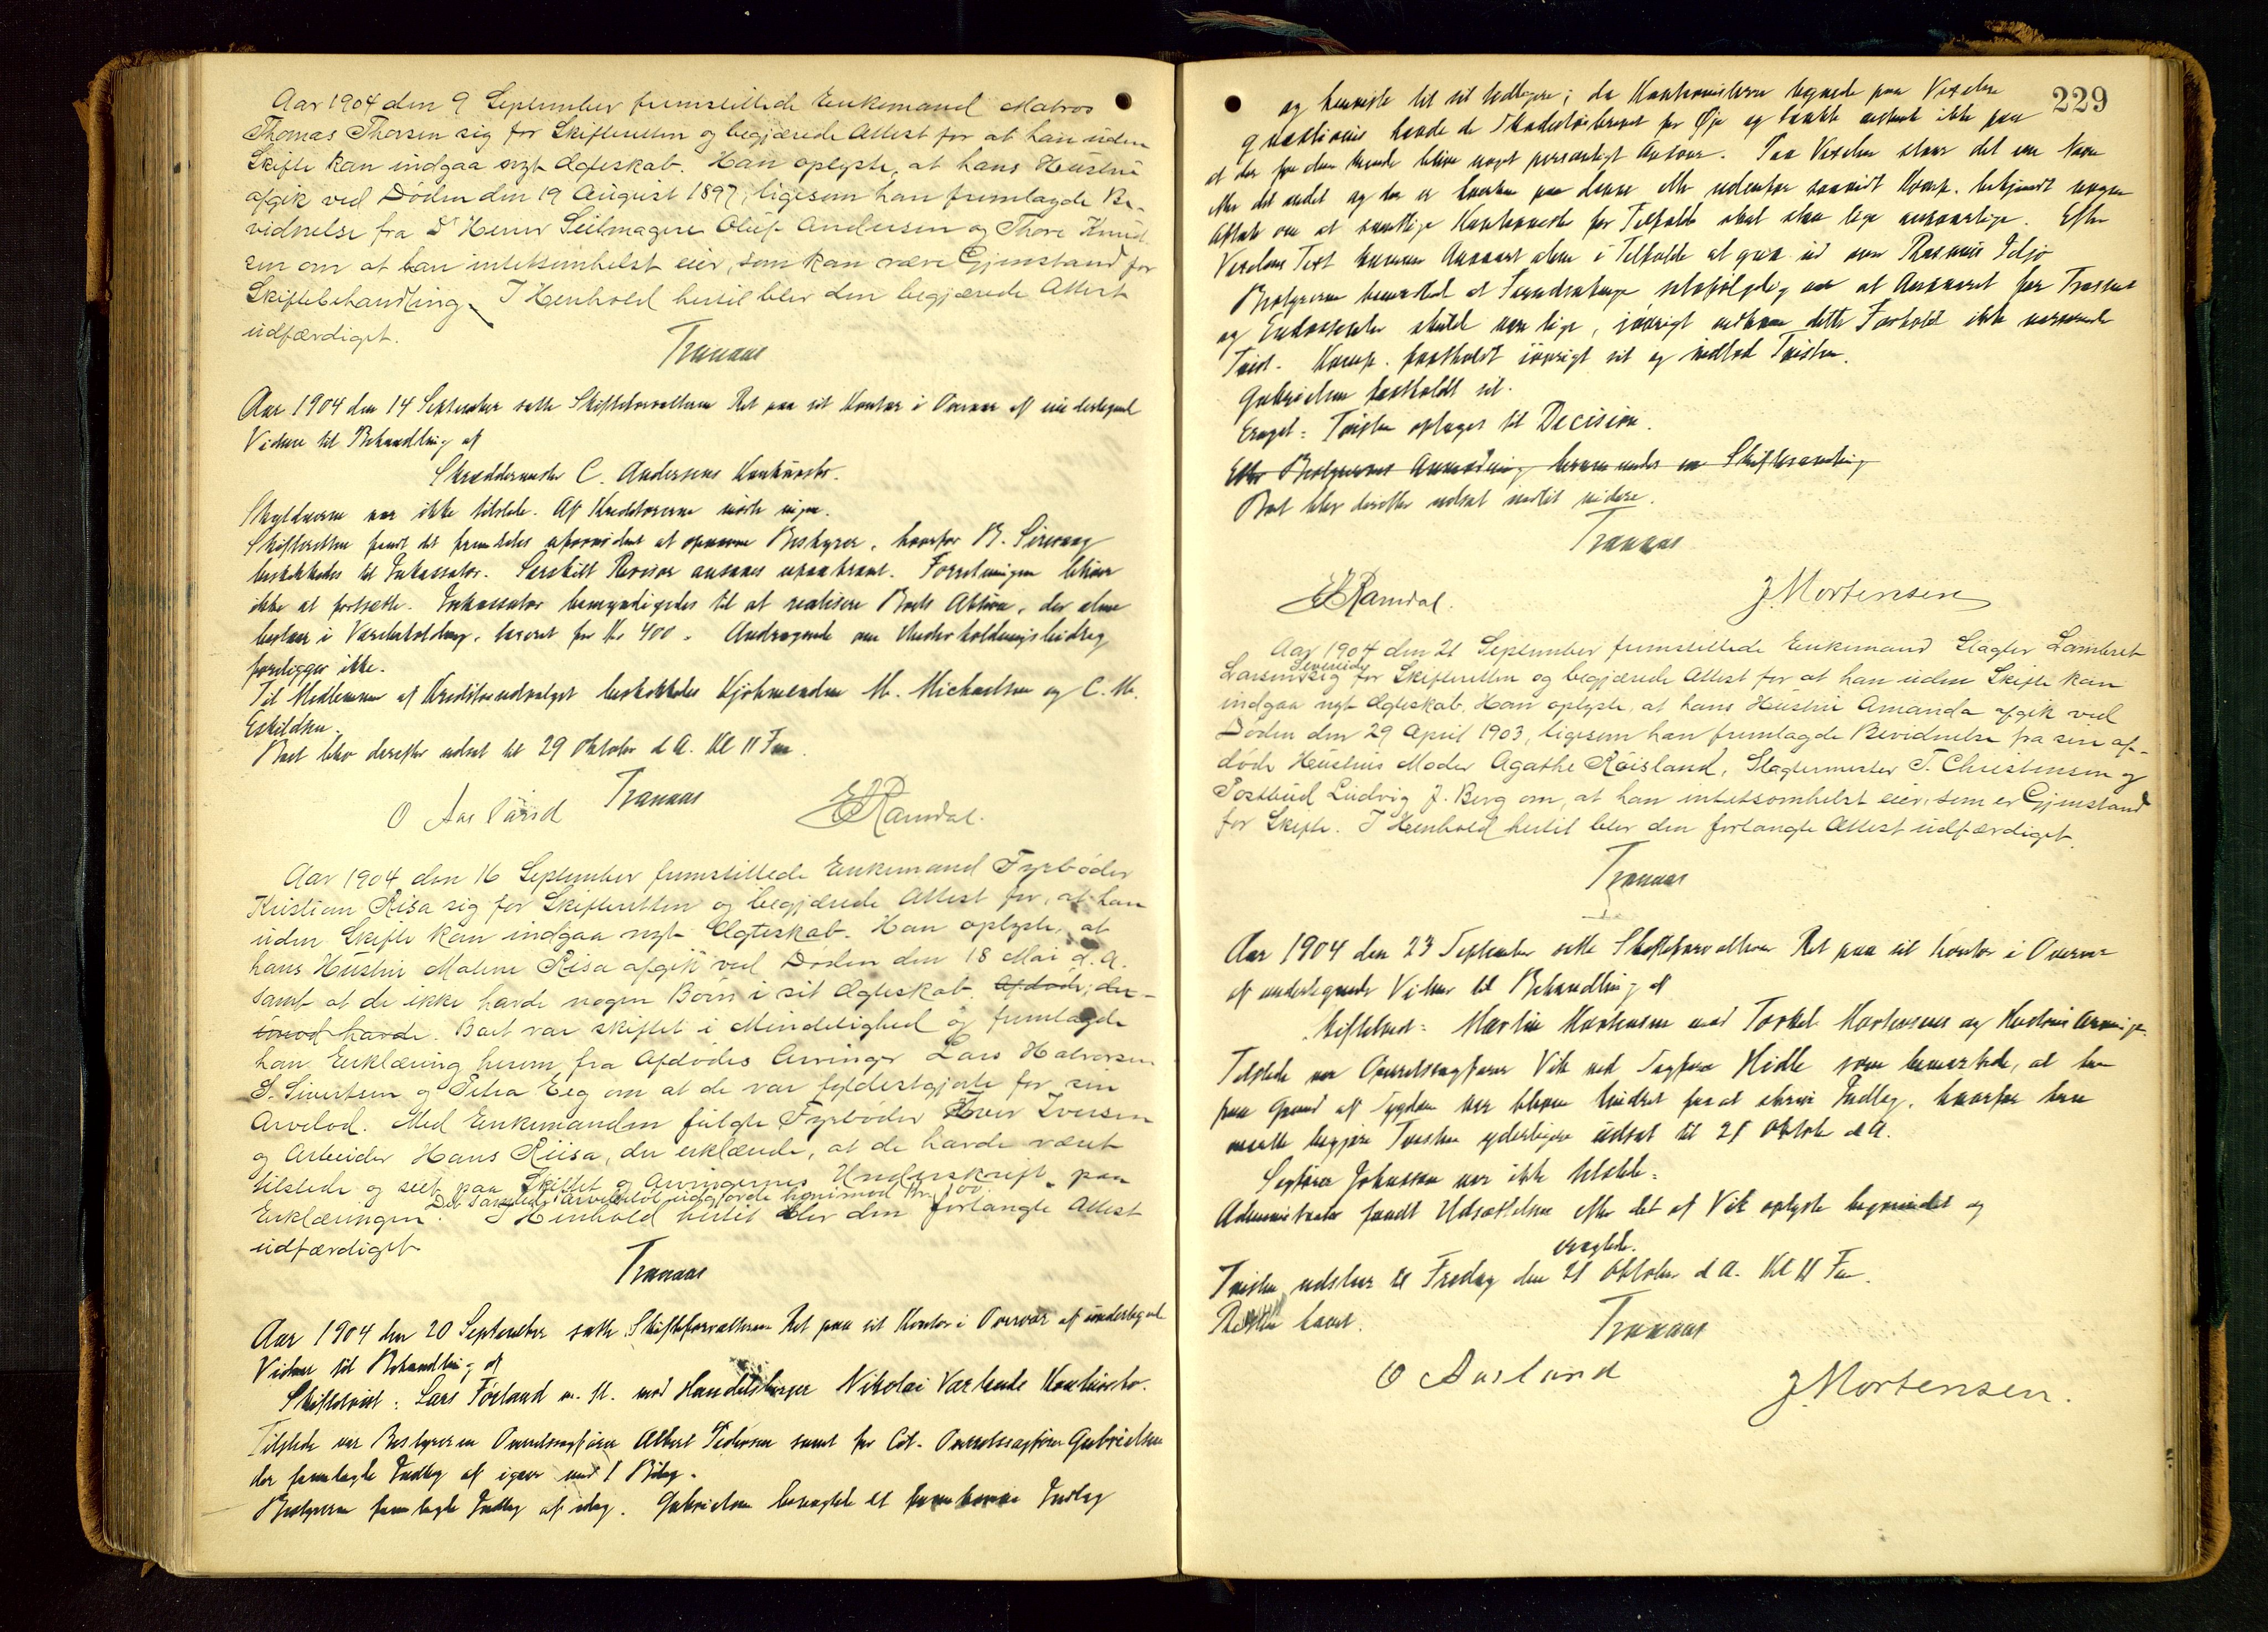 Aar 1904 den 9 September fremstillede Enkemand Matros
Thomas Thorsen sig for Skifteretten og begjærede Attest for at han uden
Skifte kan indgaa nyt Ægteskab. Han oplyste, at hans Hustru
afgik ved Døden den 19 August 1897, ligesom han fremlagde Be-
vidnelse fra D'Herrer Seilmagere Oluf Andersen og Thore Knud-
sen om at han intetsomhelst eier, som kan være Gjenstand for
Skiftebehandling. I Henhold hertil blev den begjærede Attest
udfærdiget.
Tranaas
Aar 1904 den 14 September satte Skifteforvalteren Ret paa sit Kontor i Overvær af undertegnede
Vidner til Behandling af
Skræddermester C. Andersens Konkursbo.
Skyldneren var ikke tilstede. Af Kreditorerne mødte ingen.
Skifteretten fandt det fremdeles ufornødent at opnævne Bestyrer, hvorfor B. Sirevaag
beskikkedes til Inkassator. Særskilt Revisor ansaaes upaakrævet. Forretningen bliver
ikke at fortsætte. Inkassator bemyndigedes til at realisere Boets Aktiva, der alene
bestaar i Varebeholdning, taxeret for Kr 400. Andragende om Underholdningsbidrag
foreligger ikke.
Til Medlemmer af Kreditorudvalget beskikkedes Kjøbmændene M. Michaelsen og C. M.
Eskildsen.
Boet blev derefter udsat til 29 Oktober d A. Kl 11 Fm.
Tranaas
O Aasland
E Ramdal.
Aar 1904 den 16 September fremstillede Enkemand Fyrbøder
Kristian Risa sig for Skifteretten og begjærede Attest for, at han
uden Skifte kan indgaa nyt Ægteskab. Han oplyste, at
hans Hustru Malene Risa afgik ved Døden den 18 Mai d. A.
samt at de ikke havde nogen Børn i sit Ægteskab. Afdøde, der-
imod havde. Boet var skiftet i Mindelighed og fremlagde
han Erklæring herom fra Afdødes Arvinger Lars Halvorsen
S. Sivertsen og Petra Eeg om at de var fyldestgjorte for sin
Arvelod. Med Enkemanden fulgte Fyrbøder Iver Iversen
og Arbeider Hans Riisa, der erklærede, at de havde været
tilstede og seet paa Skiftet og Arvingernes Underskrift paa
Det samlede Arvebeløb udgjorde henimod Kr. 100.
Erklæringen. I Henhold hertil blev den forlangte Attest
udfærdiget.
Tranaas
Aar 1904 den 20 September satte Skifteforvalteren Ret paa sit Kontor i Overvær af undertegnede
Vidner til Behandling af
Skiftetvist: Lars Førland m. fl. mod Handelsborger Nikolai Varlunds Konkursbo.
Tilstede var Bestyreren Overretssagfører Albert Pedersen samt for Cit. Overretssagfører Gabrielsen
der fremlagde Indlæg af igaar med 1 Bilag.
Bestyreren fremlagde Indlæg af idag. Gabrielsen benægtede det fremkomne Indlæg
229
og henviste til sit tidligere; da Kautionisterne tegnede paa Vexelen
quæstionis havde de Skadesløsbrevet for Øje og tænkte ikke paa
at der for dem kunde blive noget personligt Ansvar. Paa Vexelen staar det ene Navn
efter det andet og der er hverken paa denne eller udenfor saavidt Komp. bekjendt nogen
Aftale om at samtlige Kautionister for Tilfælde skal staa lige ansvarlige. Efter
Vexelens Text kommer Ansvaret alene i Tilfælde at gaa ud over Rasmus
Bestyreren bemærked at Forudsætninge selvfølgelig var at Ansvaret for Trassent
og Endossenter skulde være lige, iøvrigt vedkom dette Forhold ikke nærværende
Tvist. Komp. fastholdt iøvrigt sit og indlod Tvisten.
Gabrielsen fastholdt sit.
Eragtet: Tvisten optages til Decision.
Efter Bestyrerens Anmodning berammedes en Skiftesamling
Boet blev derefter udsat indtil videre.
Tranaas
E Ramdal.
J. Mortensen
Aar 1904 den 21 September fremstillede Enkemand Slagter Lambret
Sevenids
Larsen sig for Skifteretten og begjærede Attest for at han uden Skifte kan
indgaa nyt Ægteskab. Han oplyste, at hans Hustru Amanda afgik ved
Døden den 29 April 1903, ligesom han fremlagde Bevidnelse fra sin af-
døde Hustrus Moder Agathe Røisland, Slagtermester T. Christensen og
Postbud Ludvig J. Berg om, at han intetsomhelst eier, som er Gjenstand
for Skifte. I Henhold hertil blev den forlangte Attest udfærdiget.
Tranaas
Aar 1904 den 23 September satte Skifteforvalteren Ret paa sit Kontor i Overvær
af undertegnede Vidner til Behandling af
Skiftetvist: Martin Mortensen mod Torkel Mortensens og Hustrus Arvinger.
Tilstede var Overretssagfører Vik ved Sagfører Hidle som bemærkede, at han
paa Grund af Sygdom var bleven hindret for at skrive Indlæg, hvorfor han
maatte begjære Tvisten yderligere udsat til 21 Oktober d A.
Sagfører Johnsson var ikke tilstede.
Administrator fandt Udsættelsen efter det af Vik oplyste begrundet og
eragtede.
Tvisten udstaar til Fredag den 21 Oktober d A. Kl 11 Fm.
Retten hævet.
Tranaas
O Aasland
J. Mortensen.